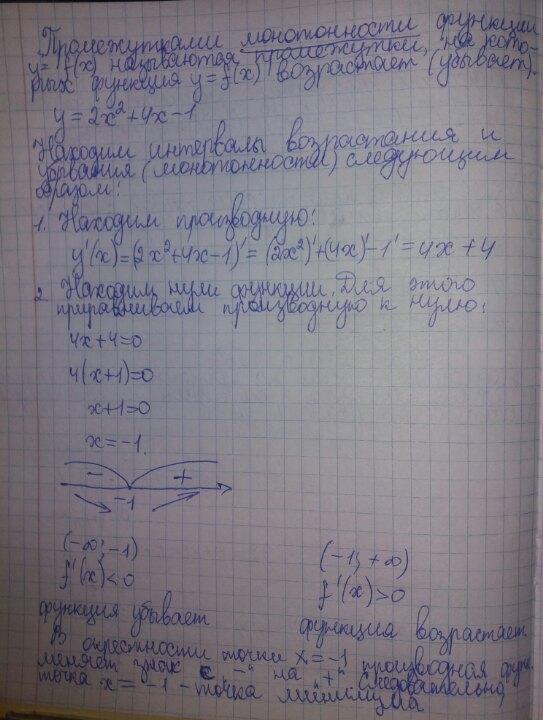 Промежутками монотонности функции
y=f(x) называются промежутки, на кото-
рых функция y=f(x) возрастает (убывает).
y=2x²+4x-1
Находим интервалы возрастания и
убывания (монотонности) следующим
образом:
1. Находим производную:
y'(x)=(2x²+4x-1)'=(2x²)'+(4x)'-1'=4x+4
2. Находим нули функции. Для этого
приравниваем производную к нулю:
4x+4=0
4(x+1)=0
x+1=0
x=-1.
- +
-1
(-∞; -1) (-1; +∞)
f'(x)<0 f'(x)>0
функция убывает функция возрастает
В окрестности точки x=-1 производная функ.
меняет знак с "-" на "+" следовательно,
точка x=-1 - точка минимума